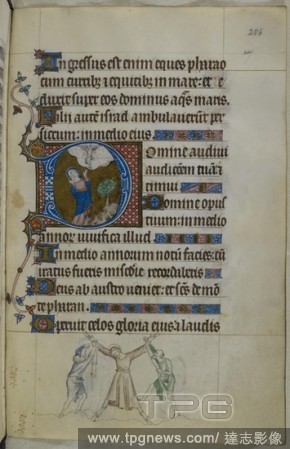 206
Ingressus est enim eques pharao
cum curribus et equitibus in mare: et re
duxit super eos dominus aquas maris.
Filii autem israel ambulaverunt per
siccum: in medio eius.
Domine audivi
auditionem tuam: et
timui
Domine opus
tuum: in medio
annorum vivifica illud.
In medio annorum notum facies: cum
iratus fueris misericordie recordaberis
Deus ab austro veniet: et sanctus de mon
te pharan.
Operuit celos gloria eius: et laudis
TPG
www.tpgnews.com / 達志影像